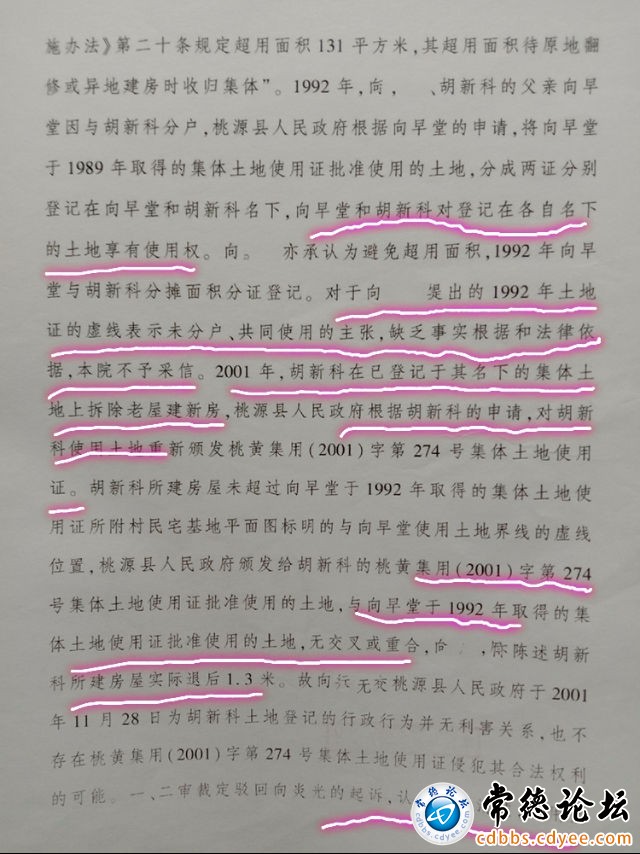 施办法》第二十条规定超用面积131平方米,其超用面积待原地翻
修或异地建房时收归集体”。1992年,向, 、胡新科的父亲向早
堂因与胡新科分户,桃源县人民政府根据向早堂的申请,将向早堂
于1989年取得的集体土地使用证批准使用的土地,分成两证分别
登记在向早堂和胡新科名下,向早堂和胡新科对登记在各自名下
的土地享有使用权。向。 亦承认为避免超用面积,1992年向早
堂与胡新科分摊面积分证登记。对于向 提出的1992年土地
证的虚线表示未分户、共同使用的主张,缺乏事实根据和法律依
据,本院不予采信。2001年,胡新科在已登记于其名下的集体土
地上拆除老屋建新房,桃源县人民政府根据胡新科的申请,对胡新
科使用土地重新颁发桃黄集用(2001)字第274号集体土地使用
证。胡新科所建房屋未超过向早堂于1992年取得的集体土地使
用证所附村民宅基地平面图标明的与向早堂使用土地界线的虚线
位置,桃源县人民政府颁发给胡新科的桃黄集用(2001)字第274
号集体土地使用证批准使用的土地,与向早堂于1992年取得的集
体土地使用证批准使用的土地,无交叉或重合,向 陈述胡新
科所建房屋实际退后1.3米。故向 桃源县人民政府于2001
年11月28日为胡新科土地登记的行政行为并无利害关系,也不
存在桃黄集用(2001)字第274号集体土地使用证侵犯其合法权利
的可能。一、二审裁定驳回向炎光的起诉,认
常德论坛
cdbbs.cdyee.com